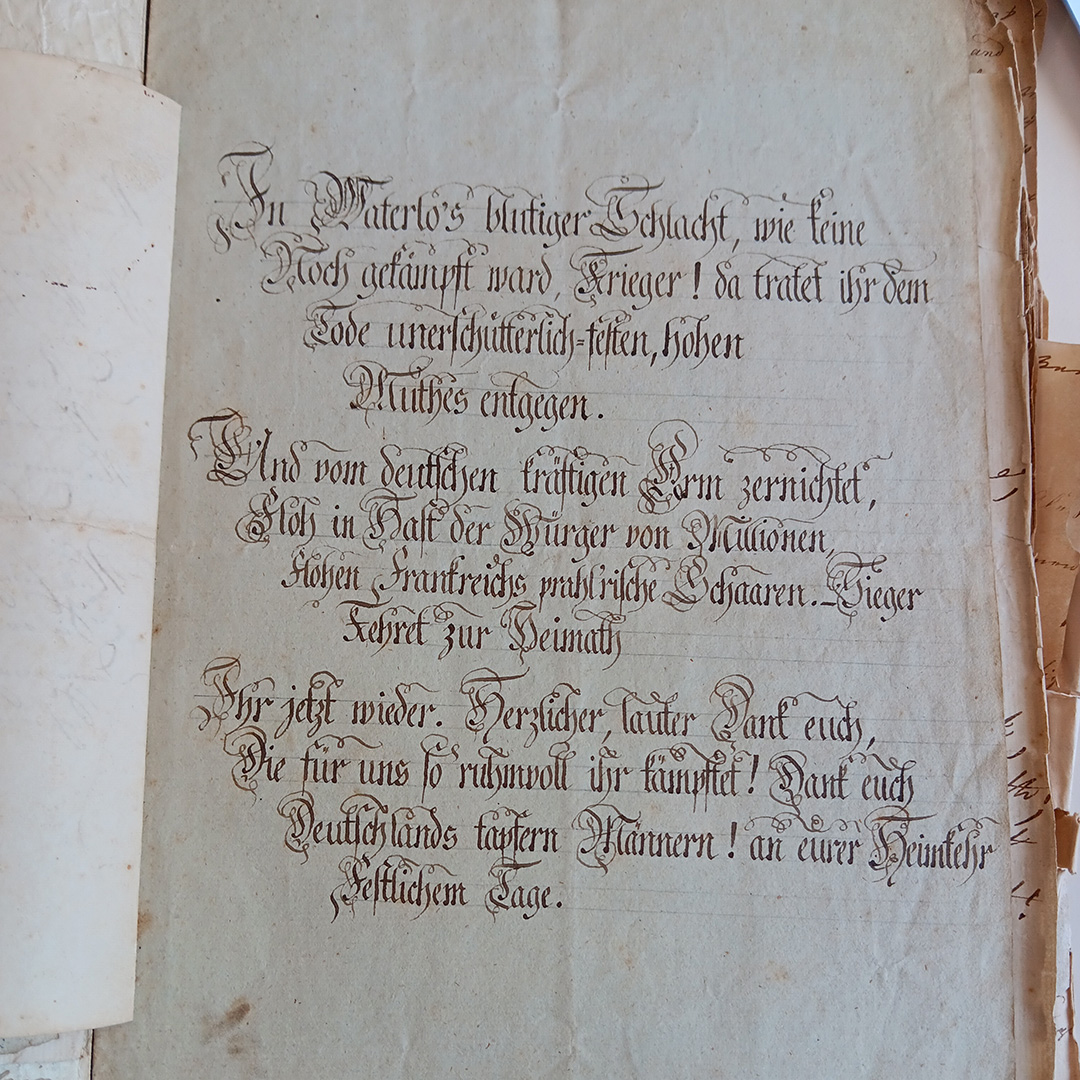 In Waterlo's blutiger Schlacht, wie keine
Noch gekämpft ward, Krieger! da tratet ihr dem
Tode unerschütterlich=festen, hohen
Muthes entgegen.
Und vom deutschen kräftigen Arm zernichtet,
Floh in Hast der Würger von Millionen,
Flohen Frankreichs prahl'rische Schaaren. _ Sieger
Kehret zur Heimath
Ihr jetzt wieder. Herzlicher, lauter Dank euch,
Die für uns so ruhmvoll ihr kämpftet! Dank euch
Deutschlands tapfern Männern! an eurer Heimkehr
Festlichem Tage.